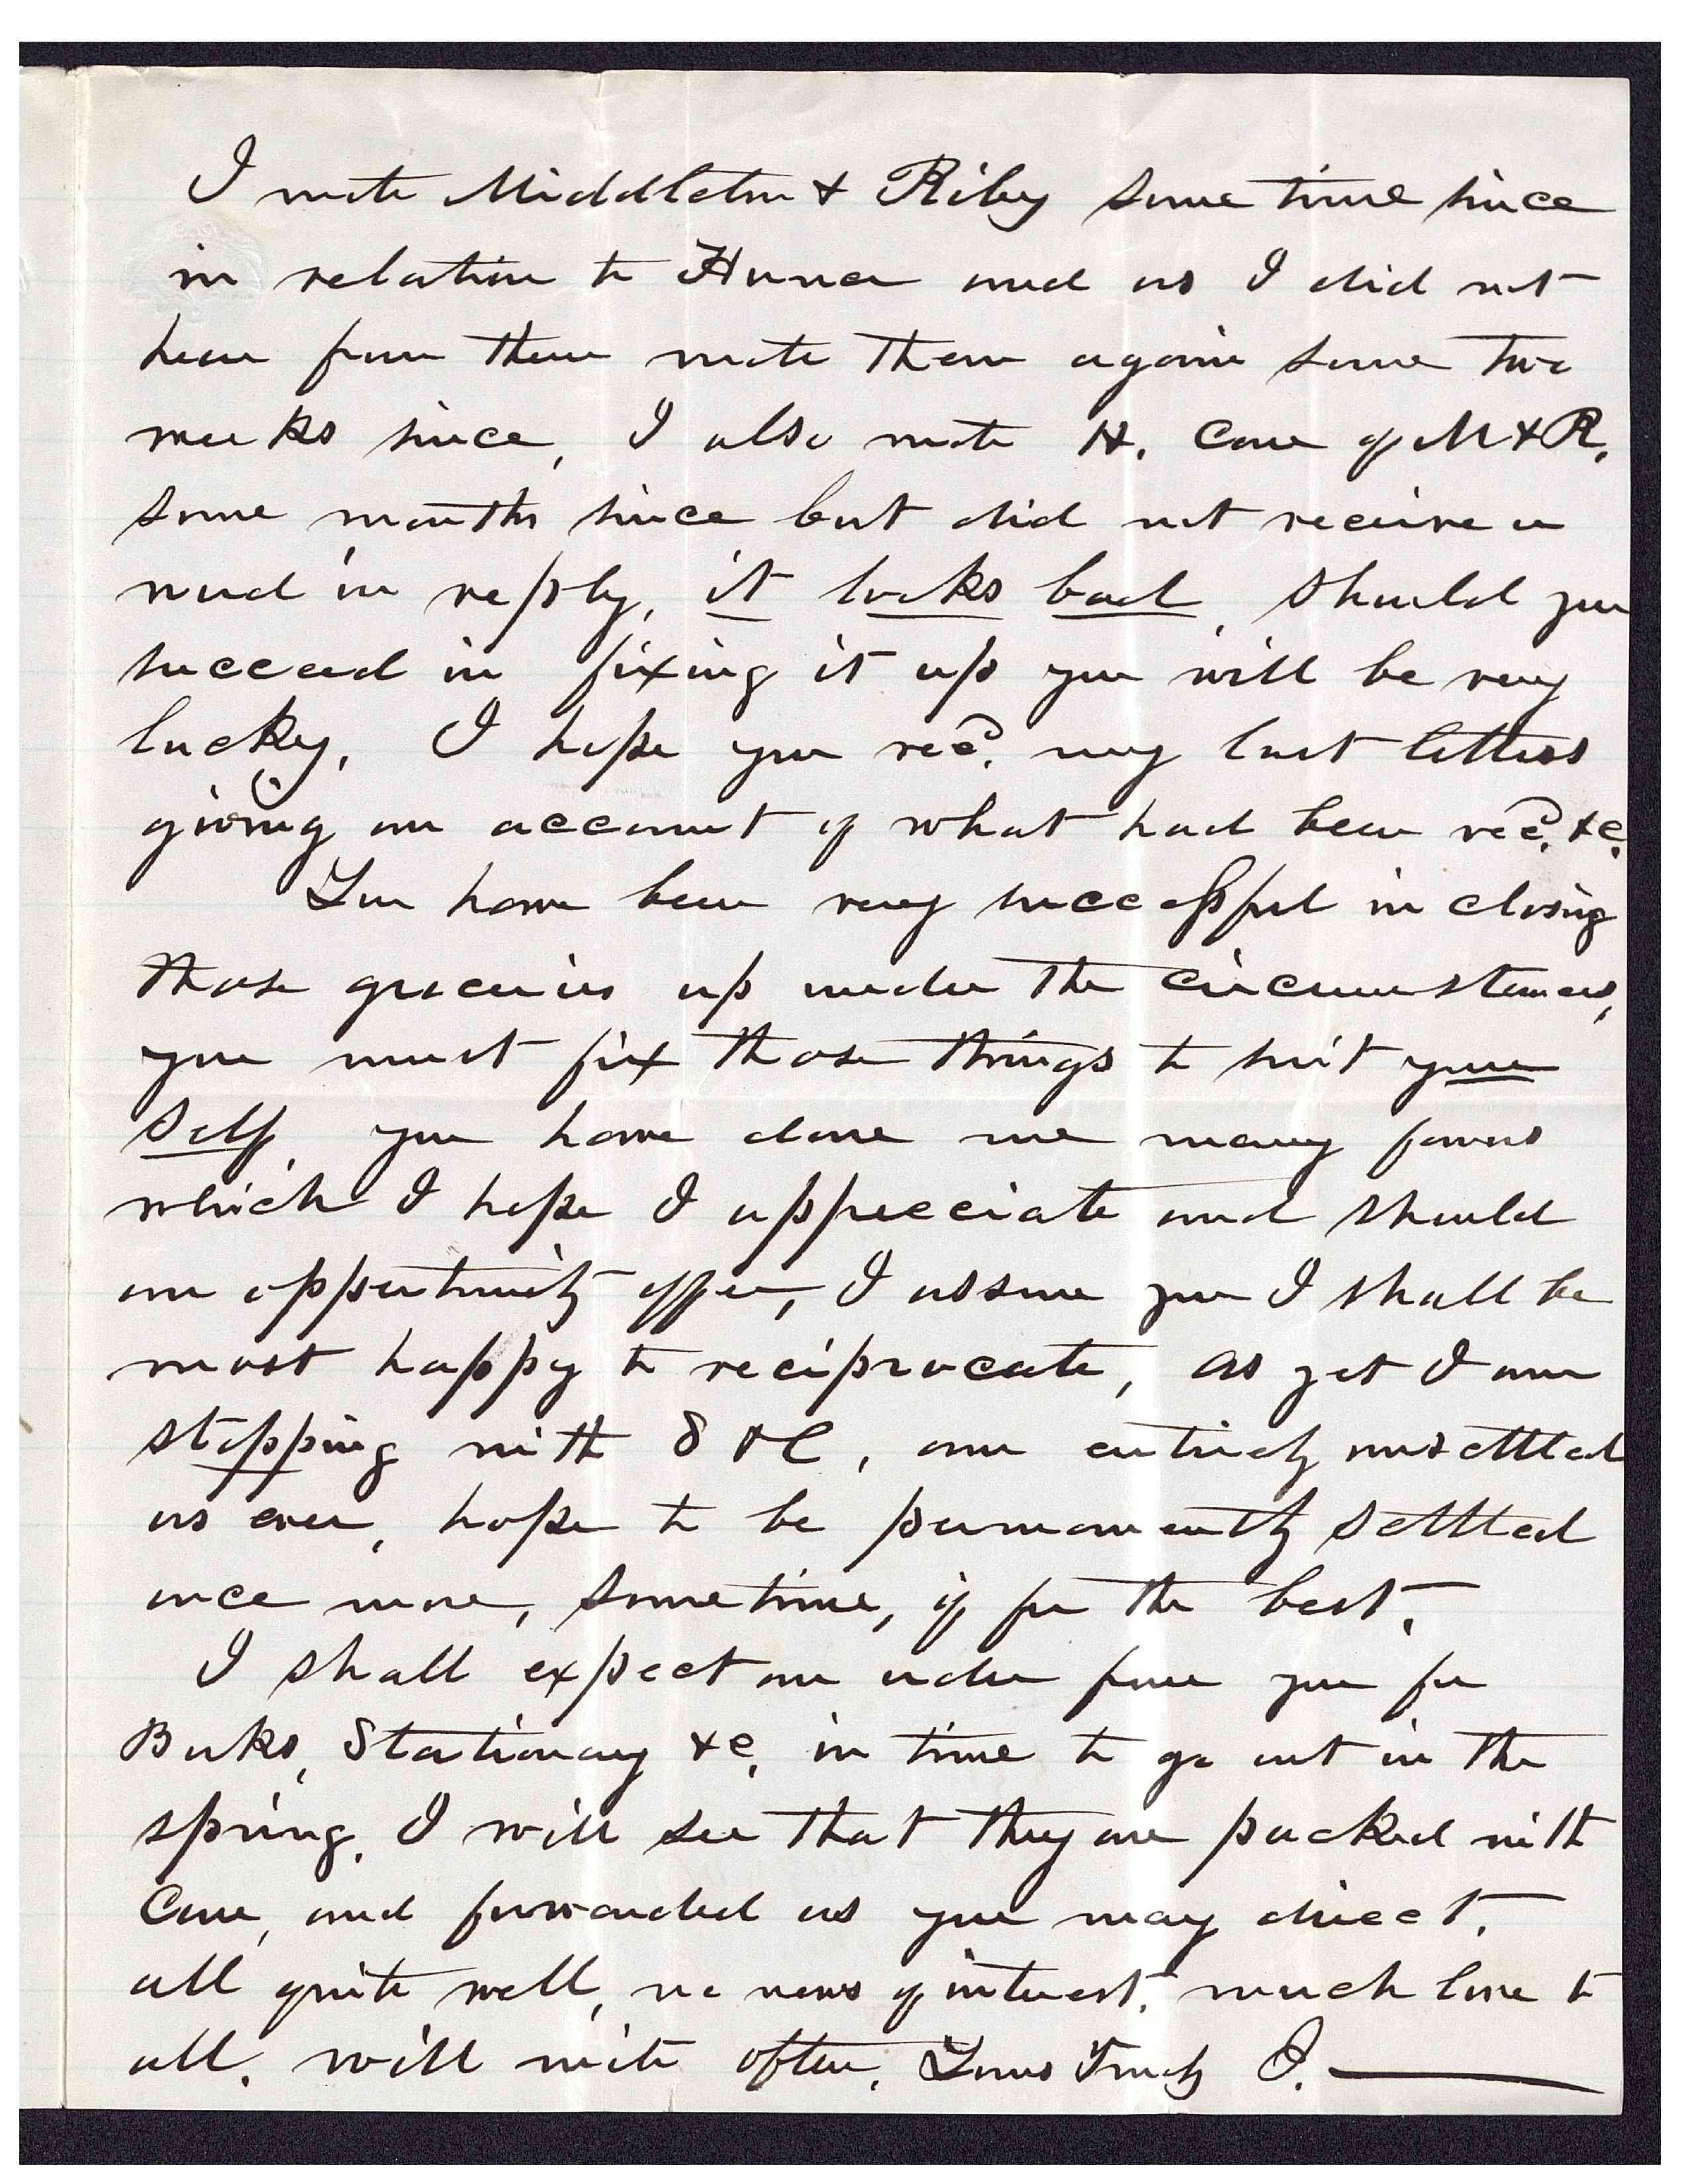 I wrote Middleton & Riley some time since
in relation to and as I did not
hear from them wrote them again some two
weeks since, I also wrote H. Care of M & R,
some months since but did not receive a
word in reply, it looks bad, should you
succeed in fixing it up you will be very
lucky, I hope you recd. my last letters
giving an account of what had been recd. &c.
You have been very successful in closing
those groceries up under the circumstances,
you must fix those things to suit your
self, you have done me many favors
which I hope I appreciate and should
an opportunity offer, I assure you I shall be
most happy to reciprocate, as yet I am
stopping with S & C, am entirely unsettled
as ever, hope to be permanently settled
once more, sometime, if for the best.
I shall expect an order from you for
Books, Stationary &c, in time to go out in the
spring, I will see that they are packed with
Care, and forwarded as you may direct.
all quite well, no news of interest, much love to
all, will write often, Yours Truly